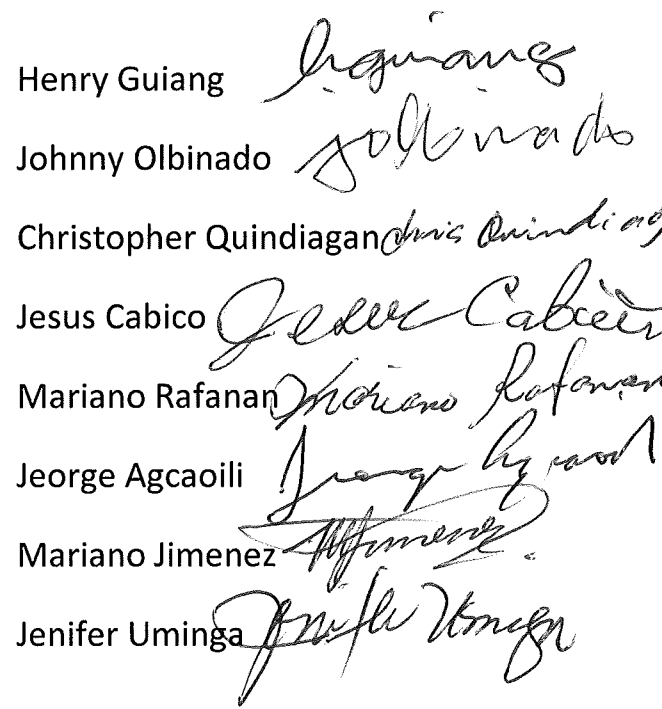 Henry Guiang hguiang
Johnny Olbinado jolbinado
Christopher Quindiagan Chris Quindiag
Jesus Cabico Jesus Cabico
Mariano Rafanan Mariano Rafanan
Jeorge Agcaoili
Mariano Jimenez MJimenez
Jenifer Uminga Jenifer Uminga